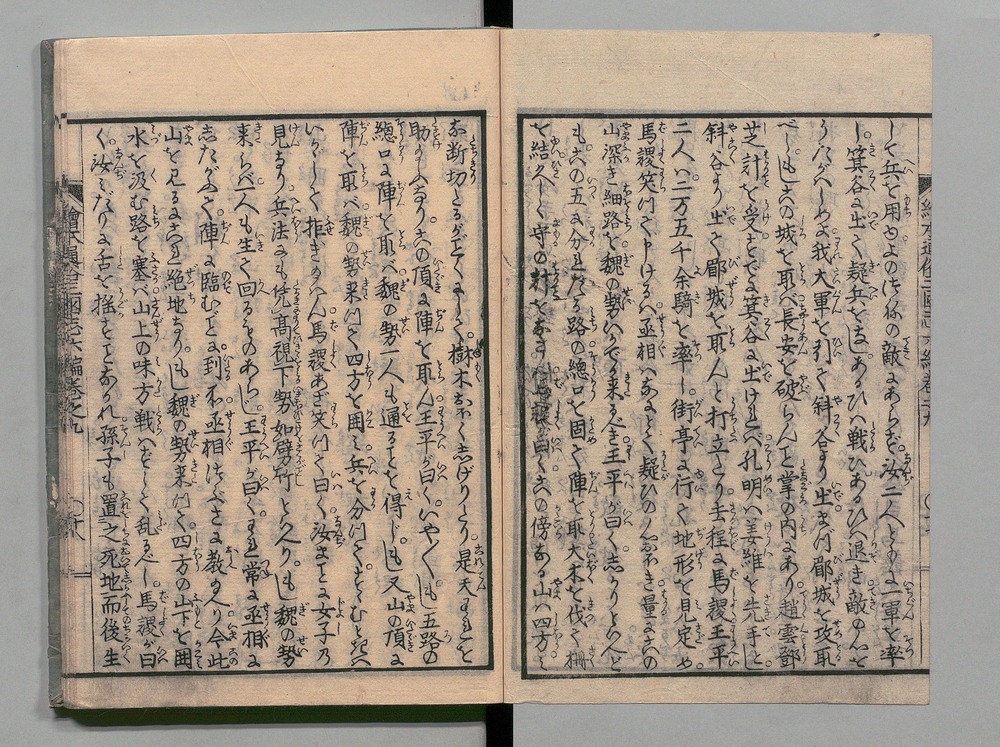 して兵を用ゆよのつねの敵にあらず汝二人ともに一軍を率
し。箕谷に出て疑兵をはりあるひハ戦ひあるひハ退き敵の心を
うたがハしめよ我大軍を引て斜谷より出まづ郿城を攻取
べしもし此の城を取バ長安を破らんこと掌の内にあり趙雲鄧
芝計を受すでに箕谷に出けれバ孔明ハ姜維を先手とし
斜谷より出て郿城を取んと打立たり去程に馬謖王平
二人ハ二万五千余騎を率し。街亭に行て地形を見定め
馬謖笑つて申けるハ丞相ハなんぞ疑ひの心多き量るに此の
山深き細路を魏の勢いかでか来るべき王平が曰くしかりといへど
もこの五に分れたる路の總口を固て陣を取大木を伐て柵
を結久しく守の計をなす馬謖が曰く此の傍なる山ハ四方
お断切たるがごとくにして。樹木おほくしげりたり是天われを
助るなり。此の頂に陣を取ん王平が曰く。いやくもし五路の
總口に陣を取バ魏の勢一人も通ることを得じもし又山の頂に
陣を取バ魏の勢来つて四方を囲ミ兵を分つてすゝむときハ
いかゞして拒ぎ給ハん馬謖あざ笑つて曰く汝まことに女子の
見なり。兵法にも凭高視下勢如劈竹といへり。もし魏の勢
来らバ一人も生て回るものあらじ王平が曰くわれ常に丞相に
したがふて陣に臨むごとに到る処丞相つぶさに教給へり今此
山を見るにこれ絶地なり。もし魏の勢来つて四方の山下を囲
水を汲む路を塞バ山上の味方戦ハずして乱るべし馬謖が曰
く。汝ミだりに舌を揺すことなかれ孫子も置之死地而後生